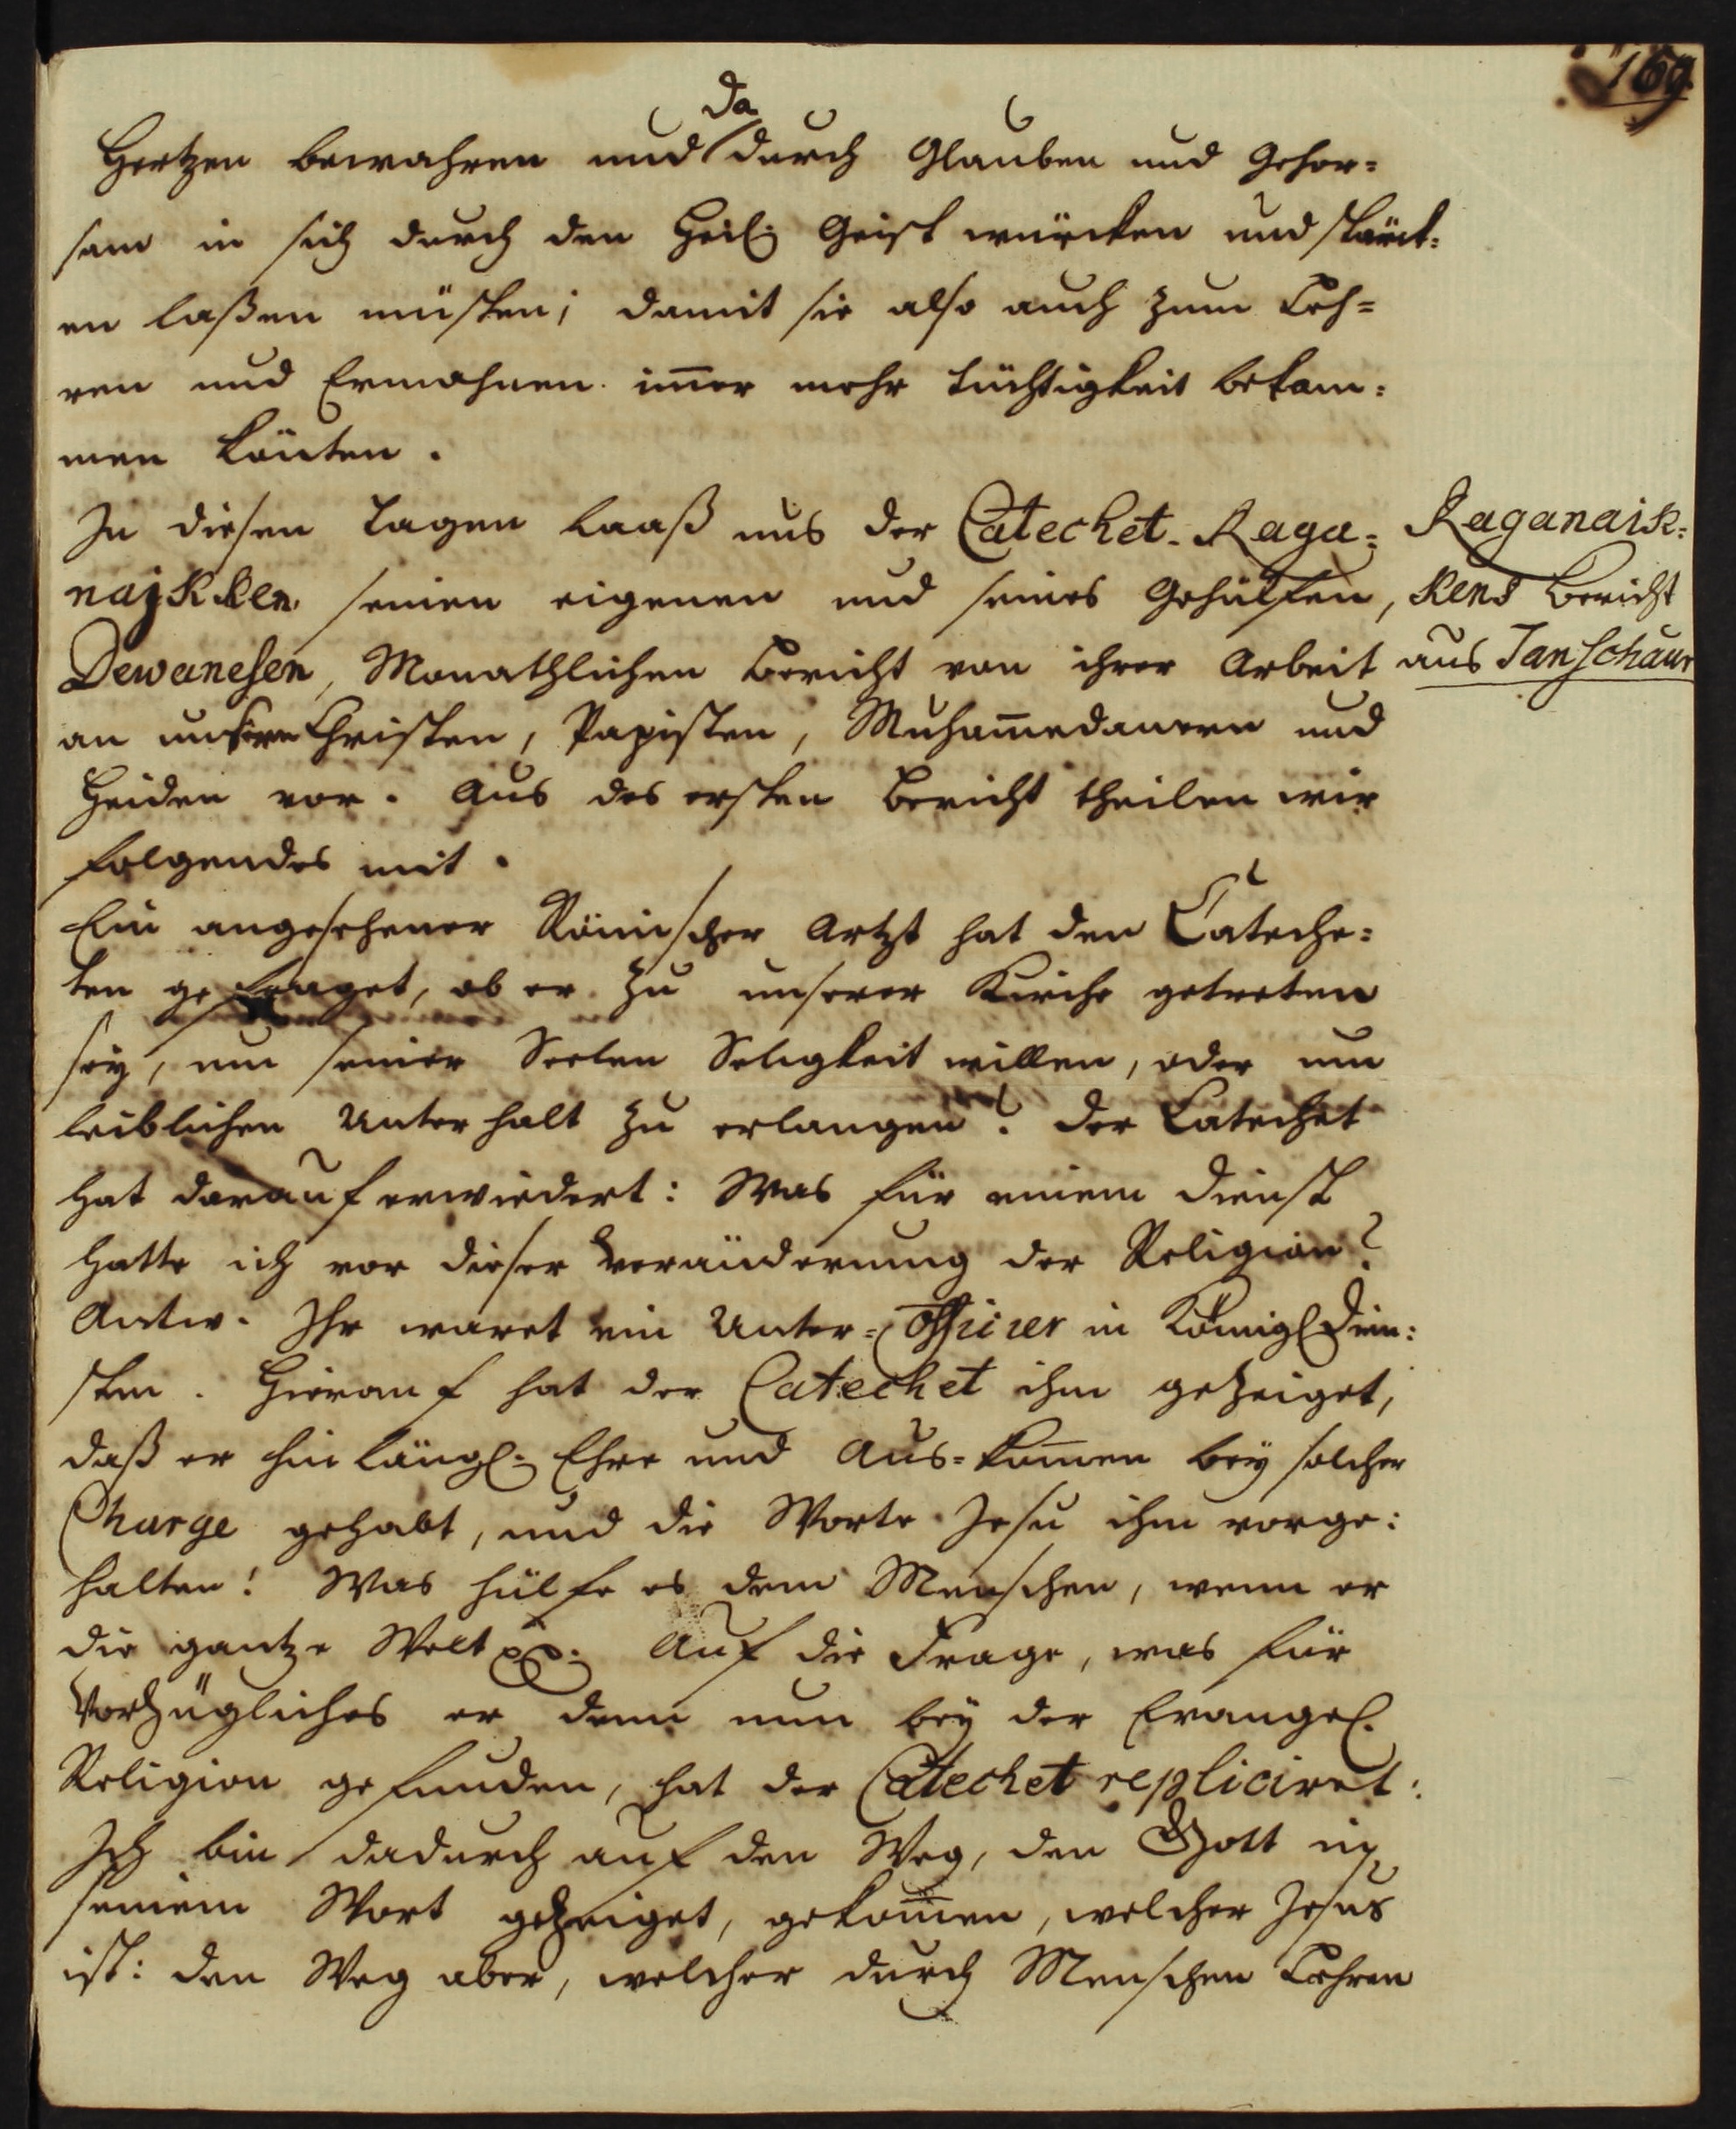 169.
Hertzen bewahren und da durch Glauben und Gehor=
sam in sich durch den Heil: Geist würcken und stärck=
en laßen müsten; damit sie also auch zum Leh=
ren und Ermahnen im̄er mehr Tüchtigkeit bekom=
men könten.
In diesen Tagen laaß uns der Catechet Raga=
najkken seinen eigenen und seines Gehülfen,
Dewanesen, Monathlichen Bericht von ihrer Arbeit
an unsern Christen, Papisten, Muham̄edanern und
Heiden vor. Aus des ersten Bericht theilen wir
folgendes mit.
Raganaik=
kens Bericht
aus Tanschaur
Ein angesehener Römischer Artzt hat den Cateche=
ten gefraget, ob er zu unserer Kirche getreten
sey, um seiner Seelen Seligkeit willen, oder um
leiblichen Unterhalt zu erlangen? Der Catechet
hat darauf erwiedert: Was für einem Dienst
hatte ich vor dieser Veränderung der Religion?
Antw. Ihr waret ein Unter=Officier in Königl Dien=
sten. Hierauf hat der Catechet ihm gezeiget,
daß er hinlängl: Ehre und Aus=kom̄en bey solcher
Charge gehabt, und die Worte Jesu ihm vorge=
halten: Was hülfe es dem Menschen, wenn er
die gantze Welt pp. Auf die Frage, was für
Vorzügliches er denn nun bey der Evangel.
Religion gefunden, hat der Catechet repliciret:
Ich bin dadurch auf den Weg, den Gott in
seinem Wort gezeiget, gekom̄en, welcher Jesus
ist: den Weg aber, welcher durch Menschen Lehren